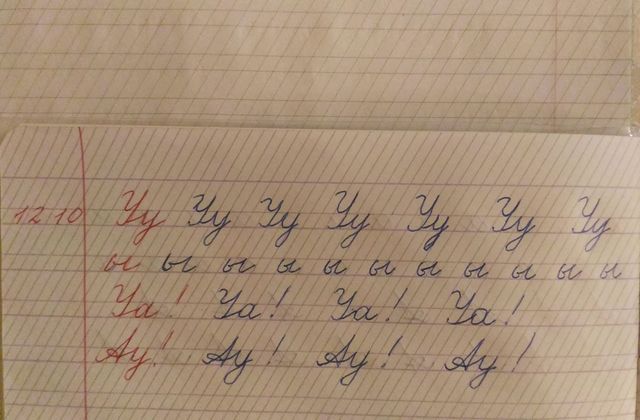 12.10 Уу Уу Уу Уу Уу Уу Уу
ы ы ы ы ы ы ы ы ы ы ы
Уа! Уа! Уа! Уа!
Ау! Ау! Ау! Ау!